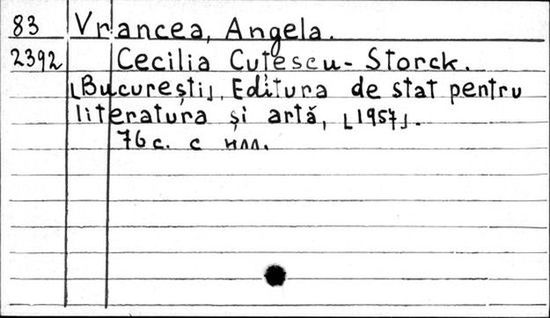 83 Vrancea, Angela.
2392 Cecilia Cuțescu-Storck.
[București], Editura de stat pentru
literatura și artă, [1957].
76 с. с илл.